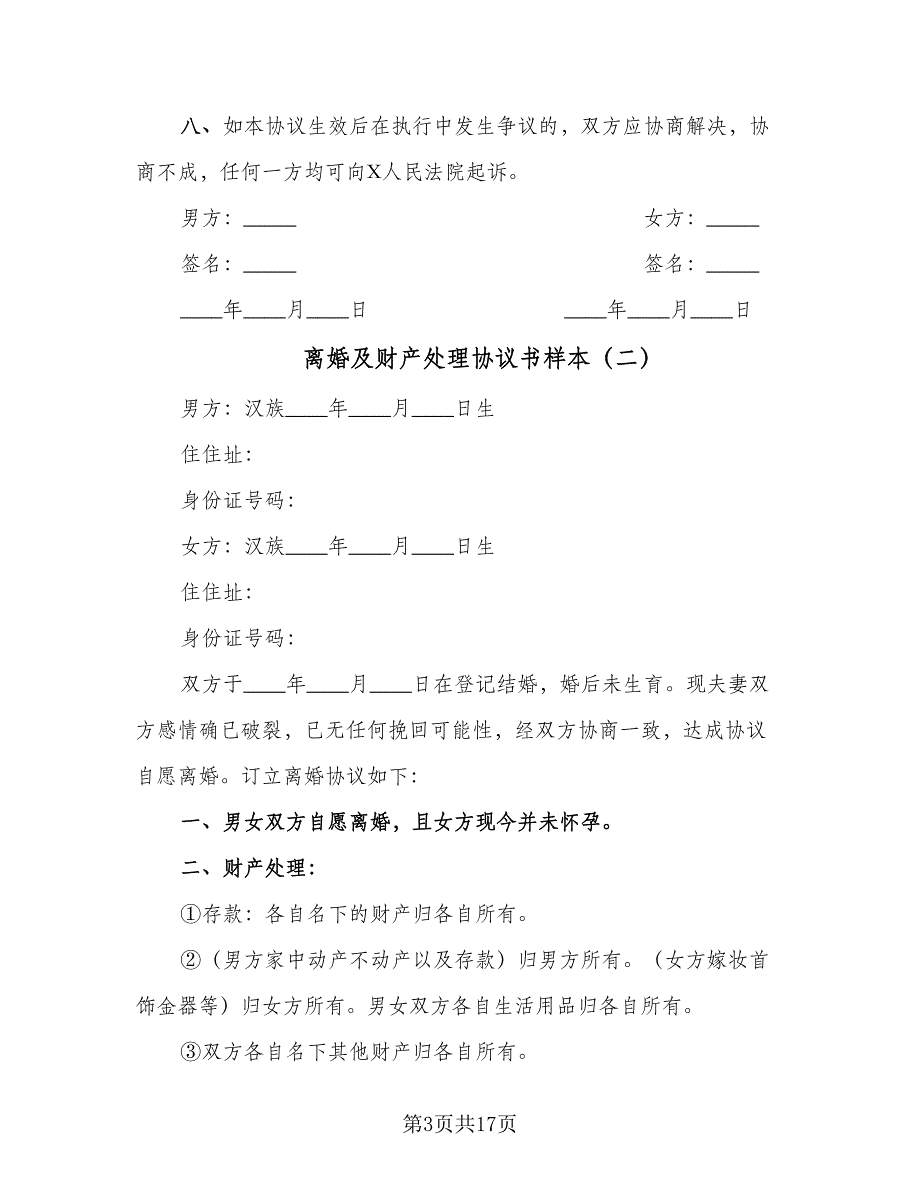 八、如本协议生效后在执行中发生争议的，双方应协商解决，协
商不成，任何一方均可向X人民法院起诉。
男方：_____ 女方：_____
签名：_____ 签名：_____
____年____月____日 ____年____月____日
离婚及财产处理协议书样本（二）
男方：汉族____年____月____日生
住住址：
身份证号码：
女方：汉族____年____月____日生
住住址：
身份证号码：
双方于____年____月____日在登记结婚，婚后未生育。现夫妻双
方感情确已破裂，已无任何挽回可能性，经双方协商一致，达成协议
自愿离婚。订立离婚协议如下：
一、男女双方自愿离婚，且女方现今并未怀孕。
二、财产处理：
①存款：各自名下的财产归各自所有。
②（男方家中动产不动产以及存款）归男方所有。（女方嫁妆首
饰金器等）归女方所有。男女双方各自生活用品归各自所有。
③双方各自名下其他财产归各自所有。
第3页共17页